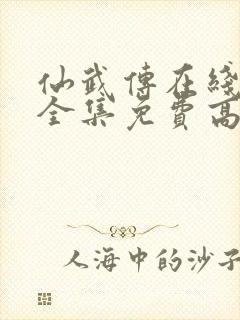 仙武傳在綫
全集免費高
人海中的沙子